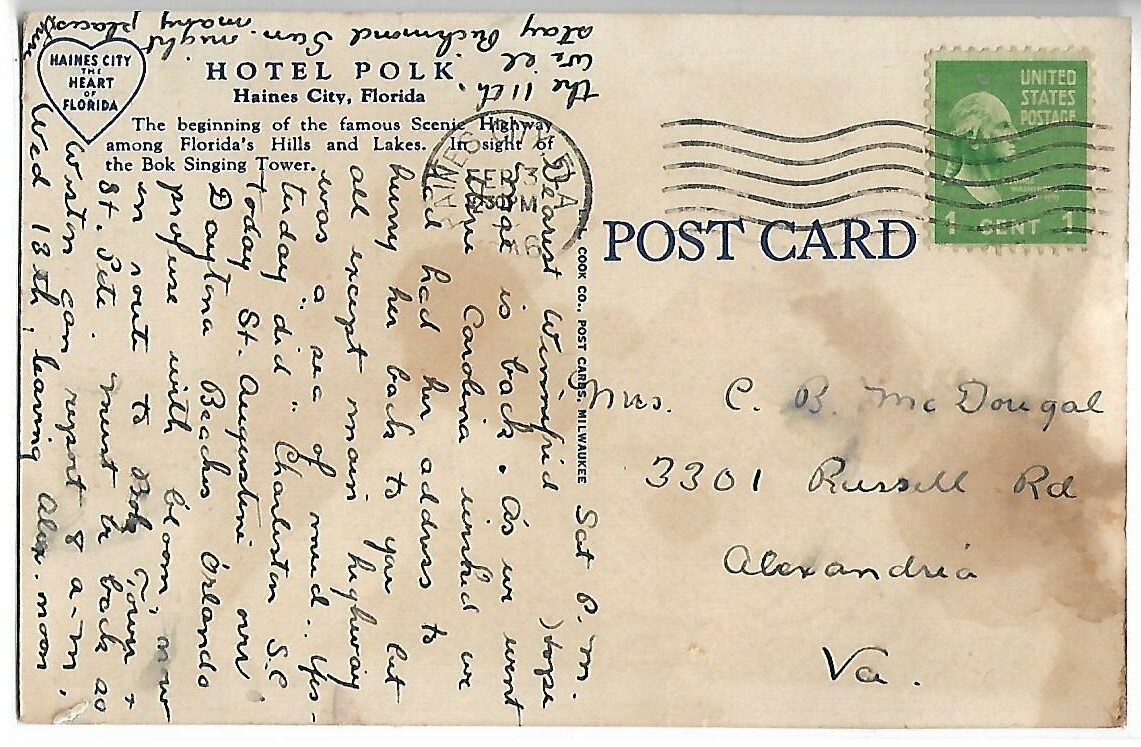 HAINES CITY
THE
HEART
OF
FLORIDA
HOTEL POLK
Haines City, Florida
The beginning of the famous Scenic Highway
among Florida's Hills and Lakes. In sight of
the Bok Singing Tower.
Sat P.M.
Dearest Winnifrid Hope
is back. As we went
thru Carolina wished we
had had her address to
hurry her back to you but
all except main highway
was a sea of mud. Yes-
terday did " Charleston S.C
Today St. Augustine over
Daytona Beaches Orlando
profuse with bloom, now
en route to Bok Tower +
St. Pete. Must be back as
can report 8 a.m.
Wed 13th, leaving Alex. noon
the 11th.
stay Richmond Sun. night
many places
COOK CO., POST CARDS, MILWAUKEE
HAINES CITY FLA
FEB 3
12 30 PM
POST CARD
UNITED
STATES
POSTAGE
WASHINGTON
1 CENT 1
Mrs. C. B. McDougal
3301 Russell Rd
Alexandria
Va.